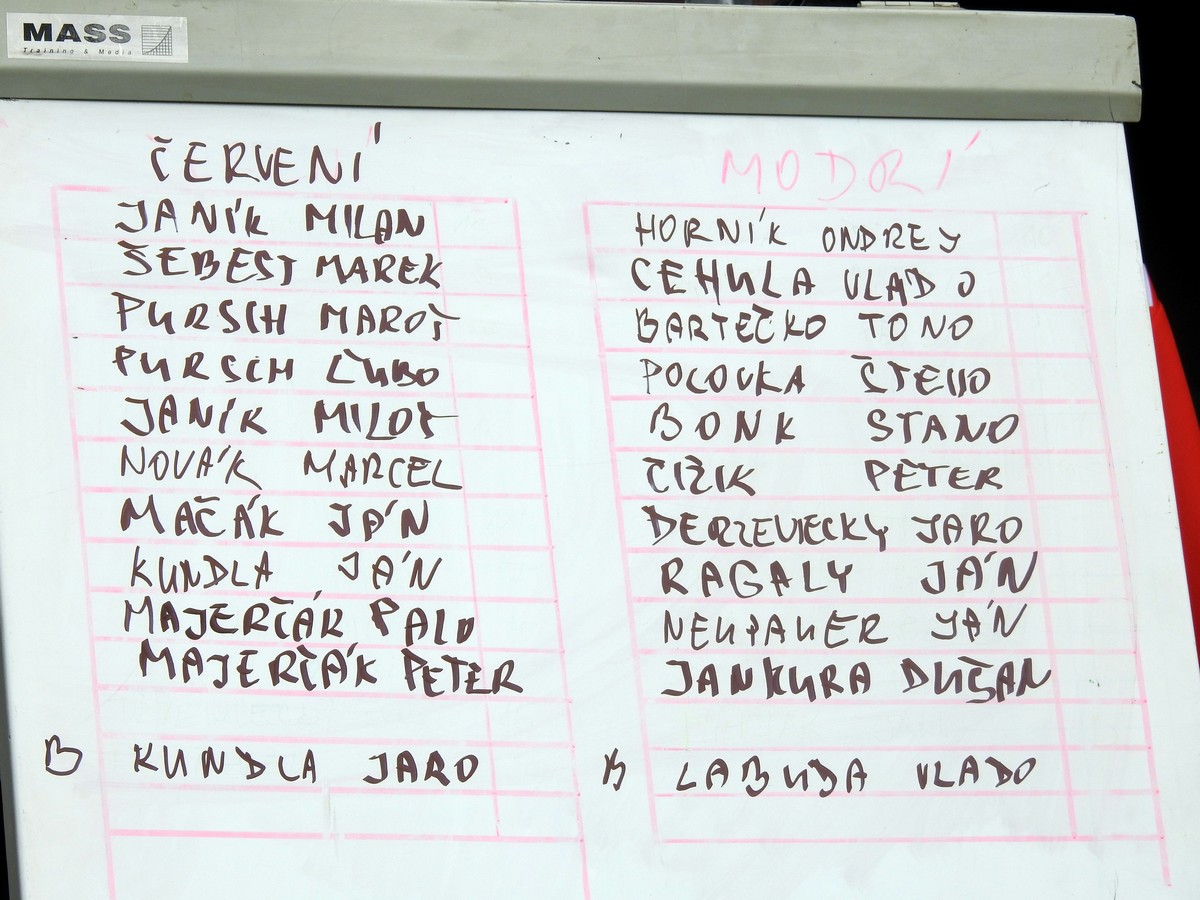 MASS
Training & Media
ČERVENÍ
JANÍK MILAN
ŠEBEST MAREK
PURSCH MAROŠ
PURSCH ĽUBO
JANÍK MILOŠ
NOVÁK MARCEL
MAČÁK JÁN
KUNDLA JÁN
MAJERČÁK PALO
MAJERČÁK PETER
B KUNDLA JARO
MODRÍ
HORNÍK ONDREY
CEHULA VLADO
BARTEČKO TONO
POLOVKA ŠTEVO
BONK STANO
ČIŽIK PETER
DERZEVIECKY JARO
RAGALY JÁN
NEUPAUER JÁN
JANKURA DUŠAN
B LABUDA VLADO